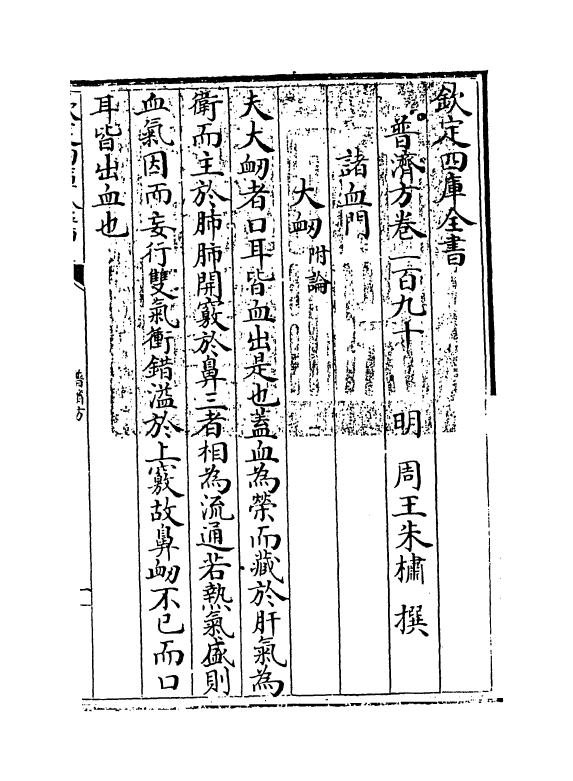 欽定四庫全書
普濟方卷一百九十　明　周王朱橚　撰
諸血門
大衂附論
夫大衂者口耳皆血出是也蓋血為榮而藏於肝氣為
衛而主於肺肺開竅於鼻三者相為流通若熱氣盛則
血氣因而妄行雙氣衝錯溢於上竅故鼻衂不已而口
耳皆出血也
普濟方